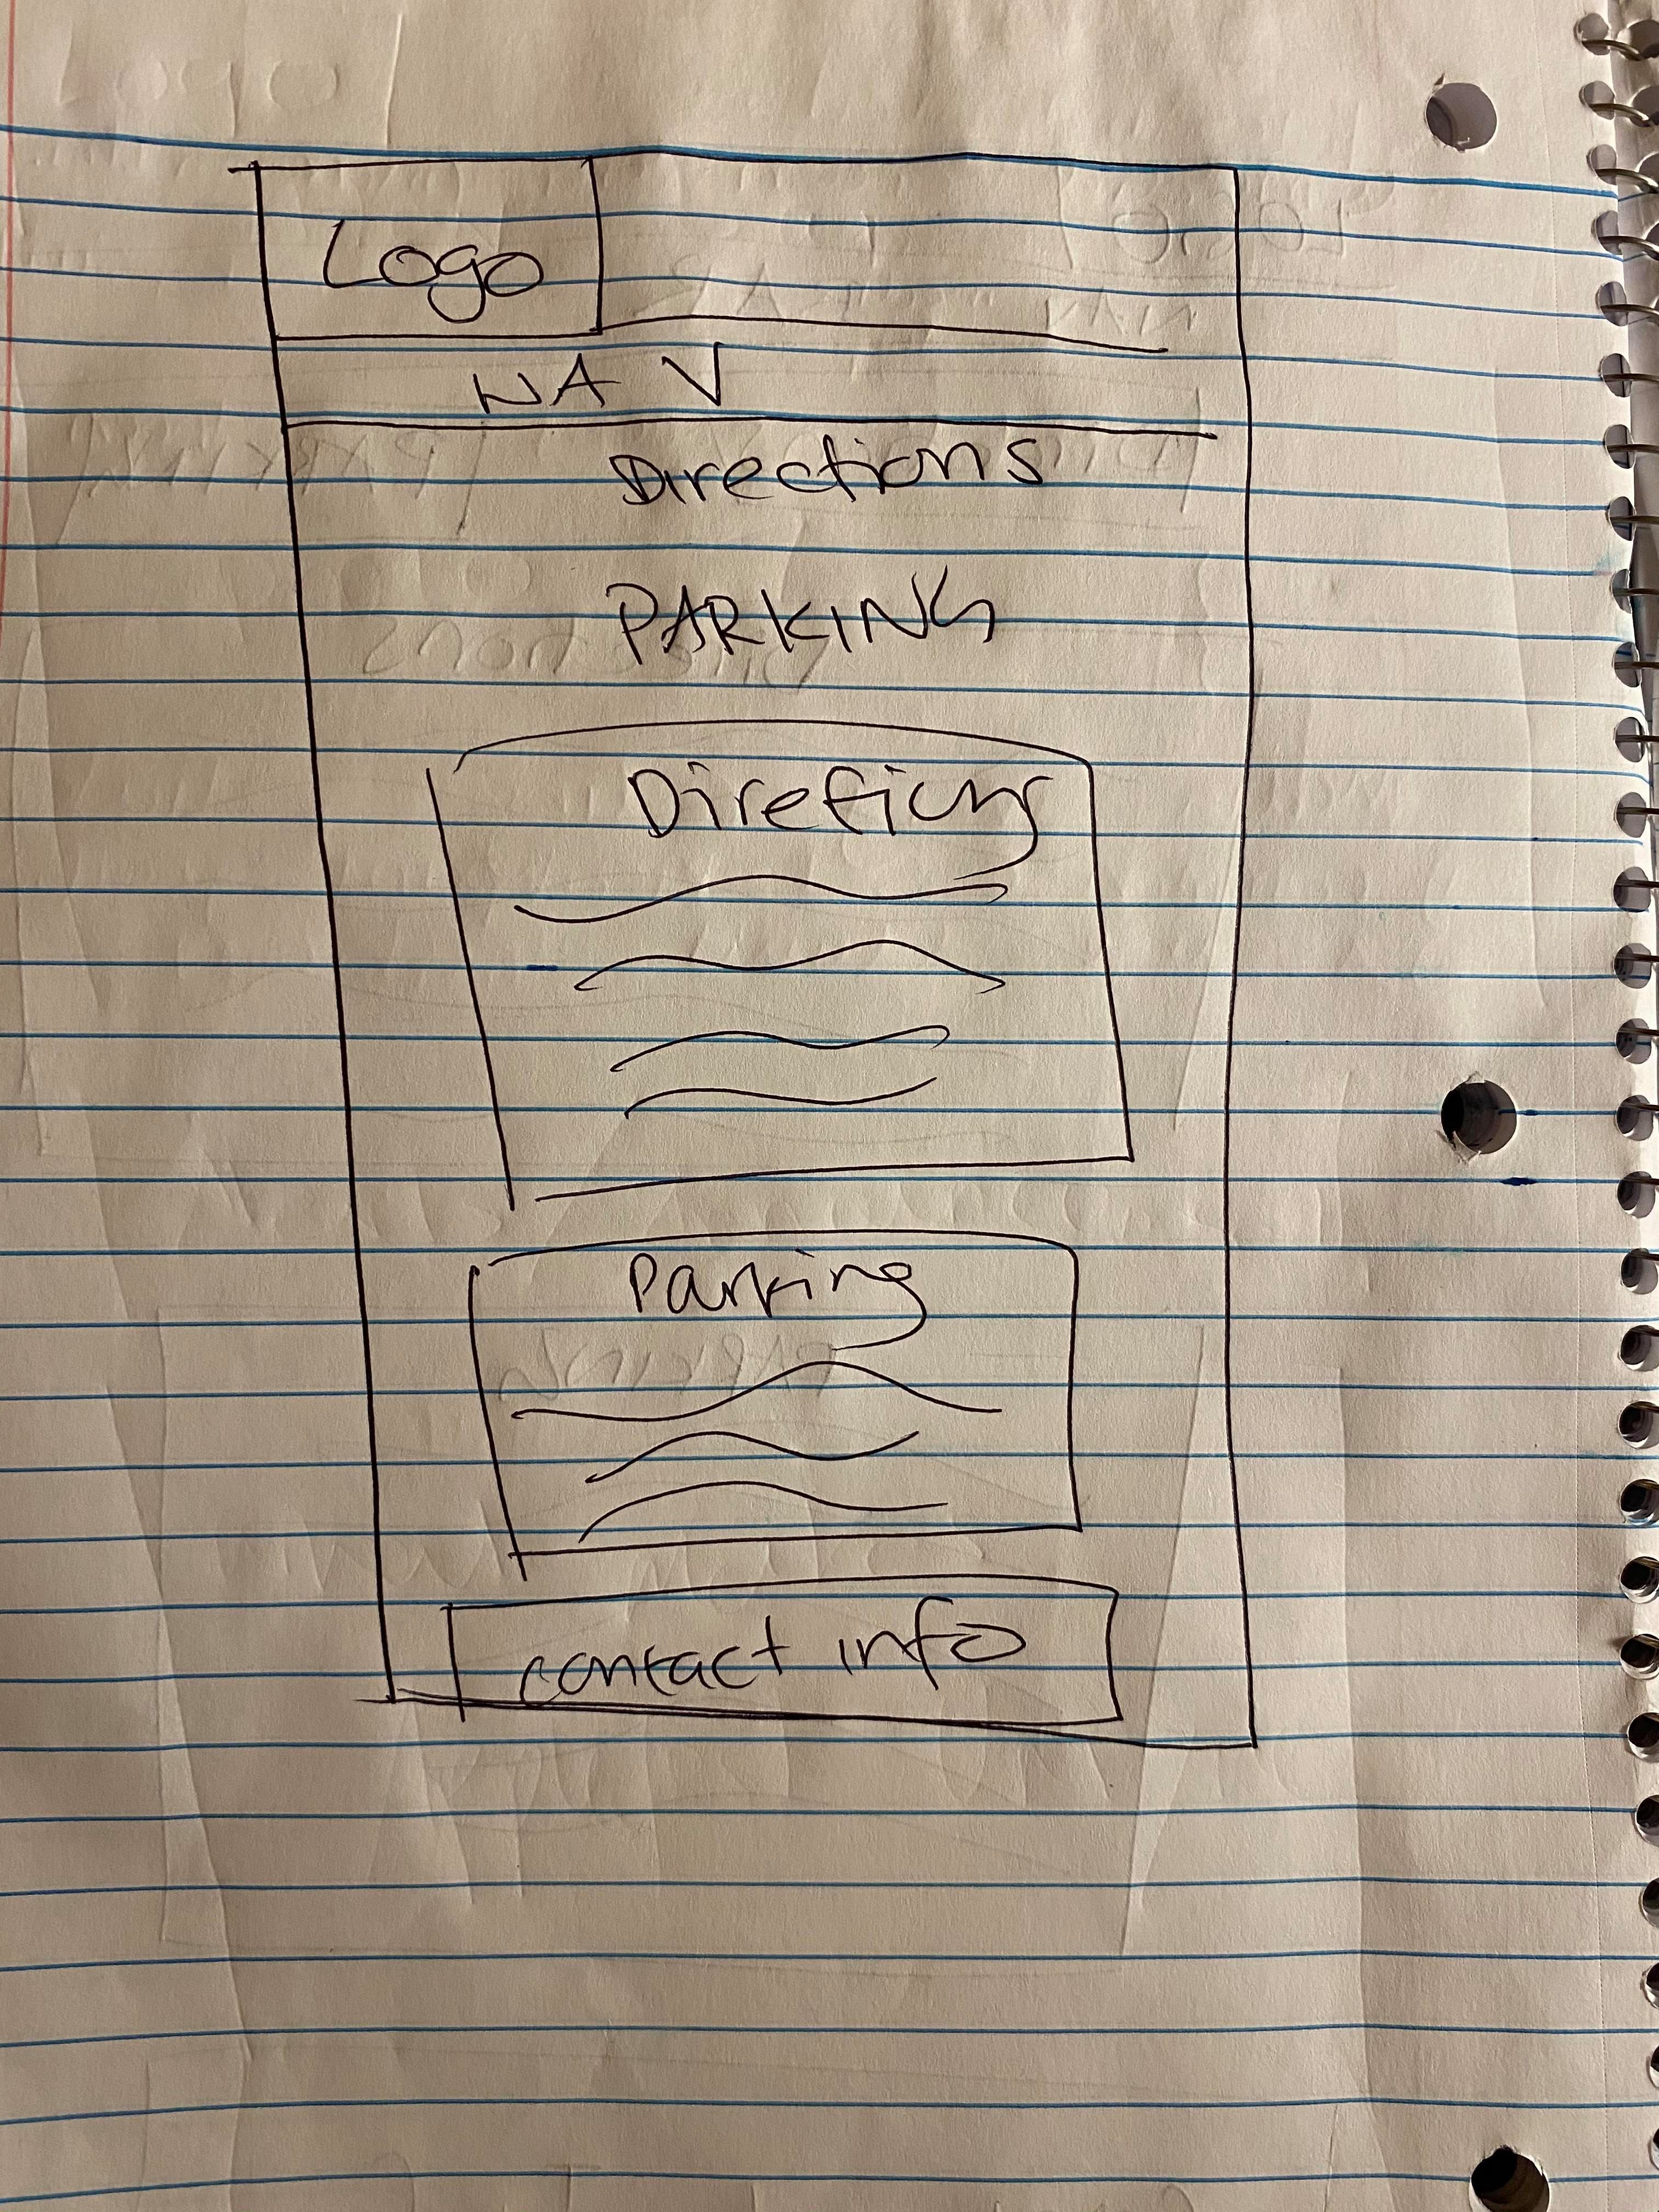 Logo
NAV
Directions
PARKING
Direfions
Parking
contact info